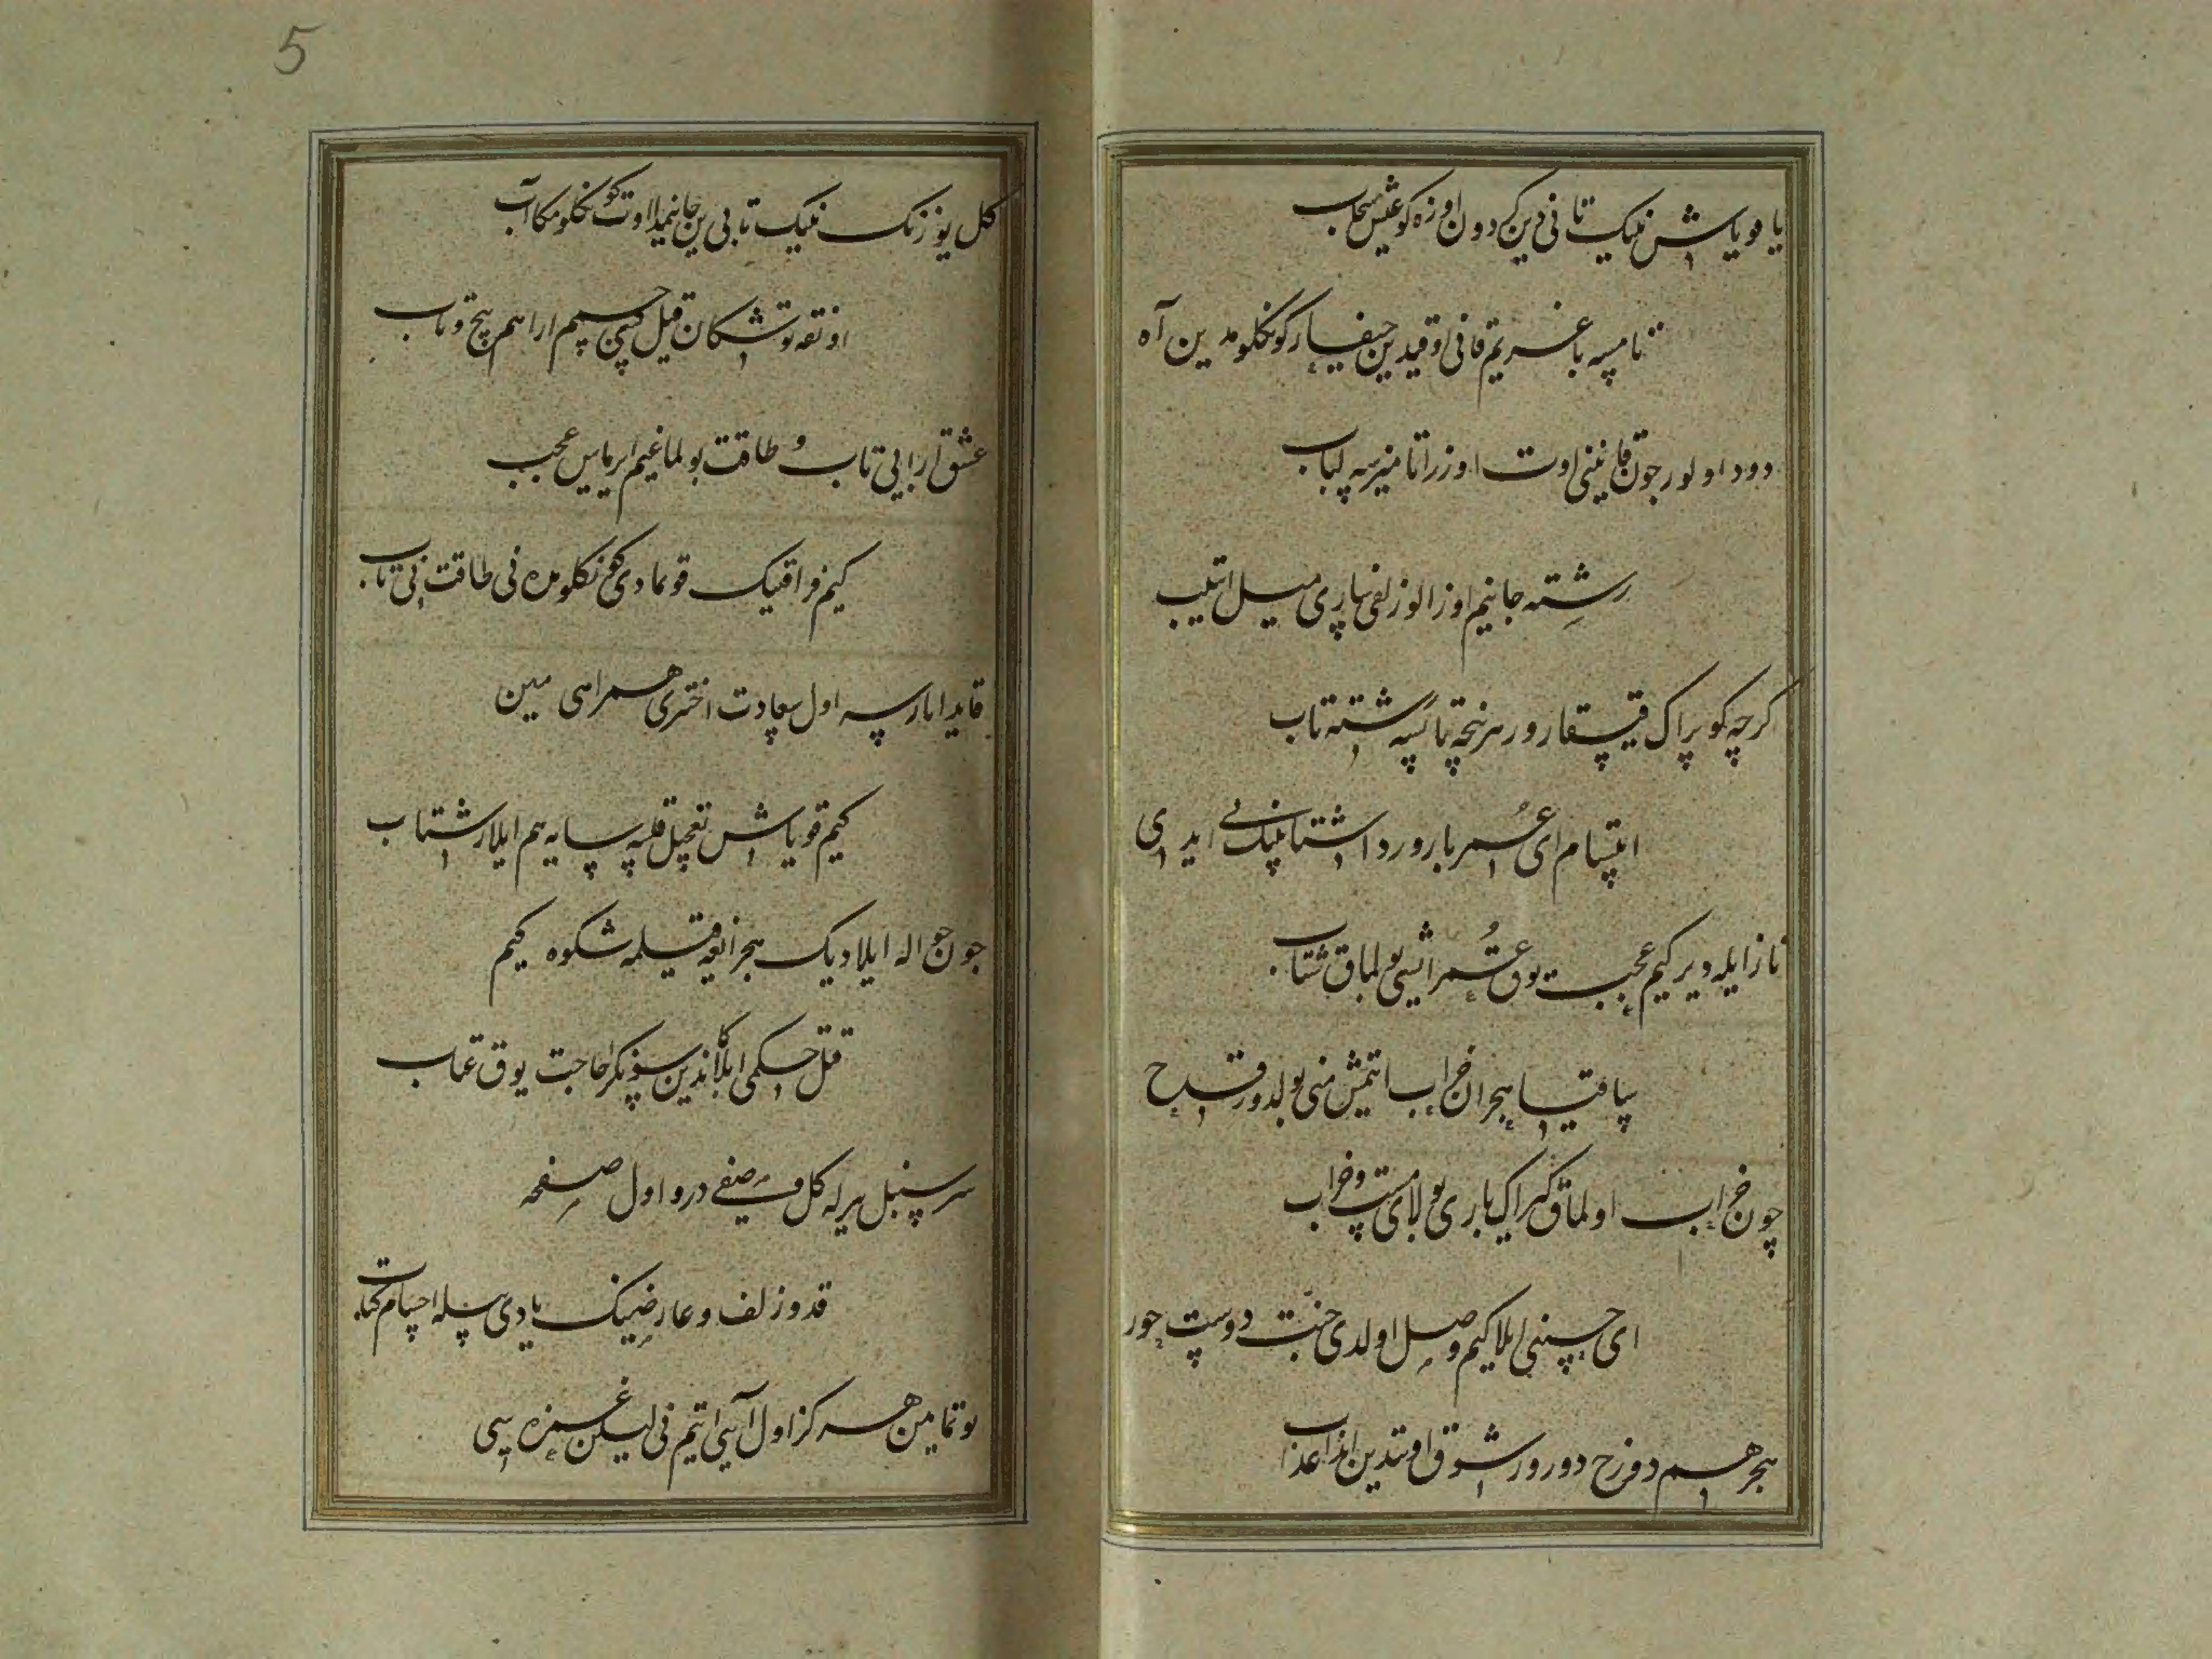 یا قویاش نینک تابی دین کردون اوزه کوغیش سحاب
تامسه باغریم قانی اوقیدین چیقار کونکلومدین آه
دود اولور چون قانینی اوت اوزرا تامیزسه کباب
رشته جانیم اوزالور زلفی ساری میل ایتیب
کرچه کوپراک قیسقارور هر نیچه تاپسه رشته تاب
ایتسام ای عمر بارور دا شتابینک نی ایدی
ناز ایله دیر کیم عجب یوق عمر ایشی بولماق شتاب
ساقیا هجران خراب ایتمیش منی بولدور قدح
چون خراب اولماق کیراک باری بولای مست و خراب
ای حسینی ایلا کیم وصل اولدی جنت دوست حور
هجر هم دوزخ دورور شوق اوتیدین اندا عذاب
5
کل یوزنک نینک تابی دین جانیمدا اوت کونکلومکا آب
اوتقه توشکان قیل کیبی جسمیم ارا هم پیچ و تاب
عشق ارا بی تاب و طاقت بولماغیم ایرماس عجب
کیم فراقینک قویمادی کونکلومده نی طاقت نی تاب
قایدا بارسه اول سعادت اختری همراهی مین
کیم قویاش تعجیل قیلسه سایه هم ایلار شتاب
چون حواله ایلادینک هجرانغه قیلمه شکوه کیم
قتل حکمی ایلاکاندین سونکرا حاجت یوق عتاب
سرو سنبل بیرله کل وصفی دورو اول صفحه
قد و زلف و عارضینک یادی بیله اچسام کتاب
توتمامین هرکز اول آیینی ایتیم نی لیکن غمزه سی